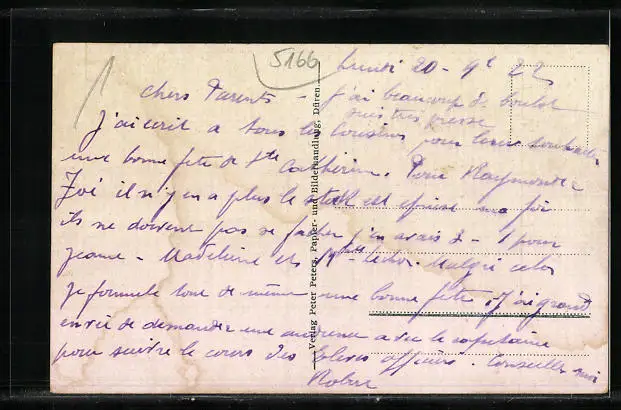 5166
Lundi 20 - 9e 22
Chers Parents - J'ai beaucoup de boulot
suis très pressé
J'ai écrit à tous les Cousins pour leur souhaiter
une bonne fête de Ste Catherine. Pour Raymonde
Zoé il n'y en a plus le stock est épuisé ma foi
ils ne doivent pas se fâcher j'en avais 3 - 1 pour
Jeanne - Madeleine et Malgré cela
Je formule tout de même une bonne fête. J'ai grand
envie de demander une audience avec le capitaine
pour suivre le cours des Elèves officiers. Conseillez moi
Robert
Verlag Peter Peters, Papier- und Bilderhandlung, Düren.